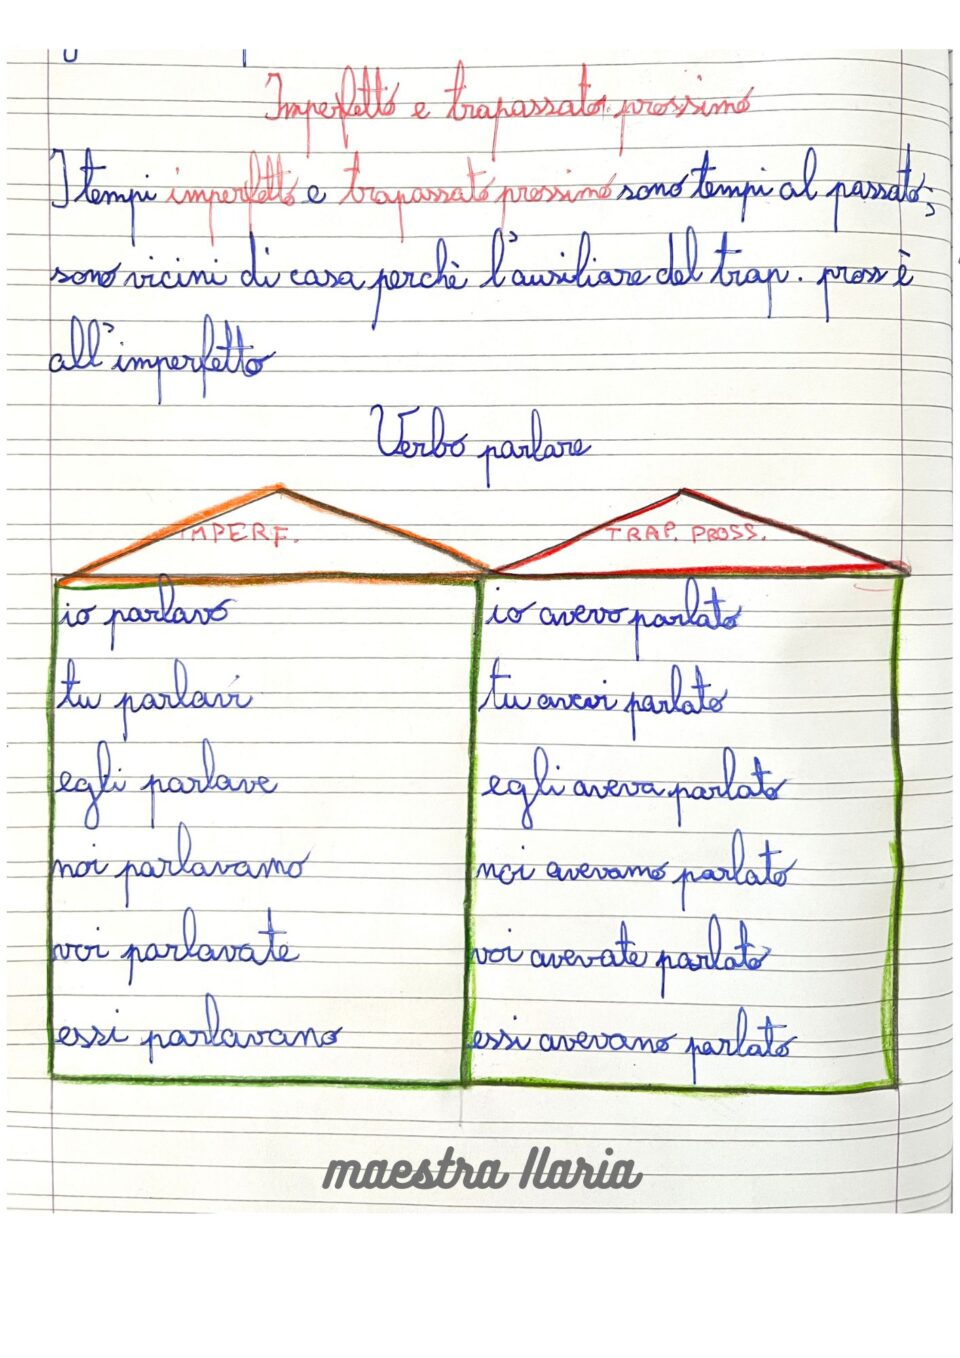 Imperfetto e trapassato prossimo
I tempi imperfetto e trapassato prossimo sono tempi al passato;
sono vicini di casa perchè l'ausiliare del trap. pross è
all'imperfetto
Verbo parlare
IMPERF. TRAP. PROSS.
io parlavo io avevo parlato
tu parlavi tu avevi parlato
egli parlave egli aveva parlato
noi parlavamo noi avevamo parlato
voi parlavate voi avevate parlato
essi parlavano essi avevano parlato
maestra Ilaria